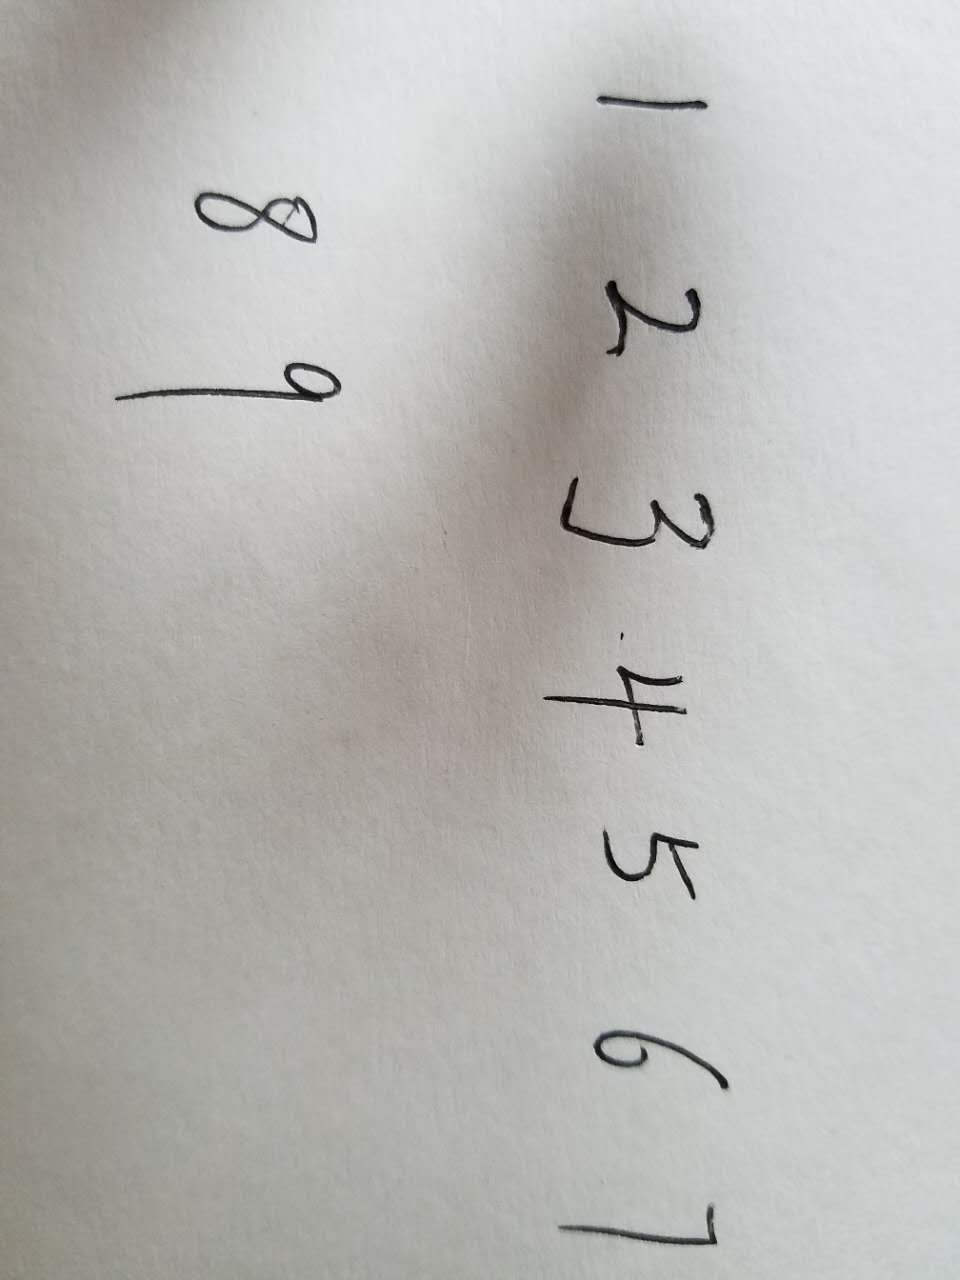 1 2 3 4 5 6 7
8 9